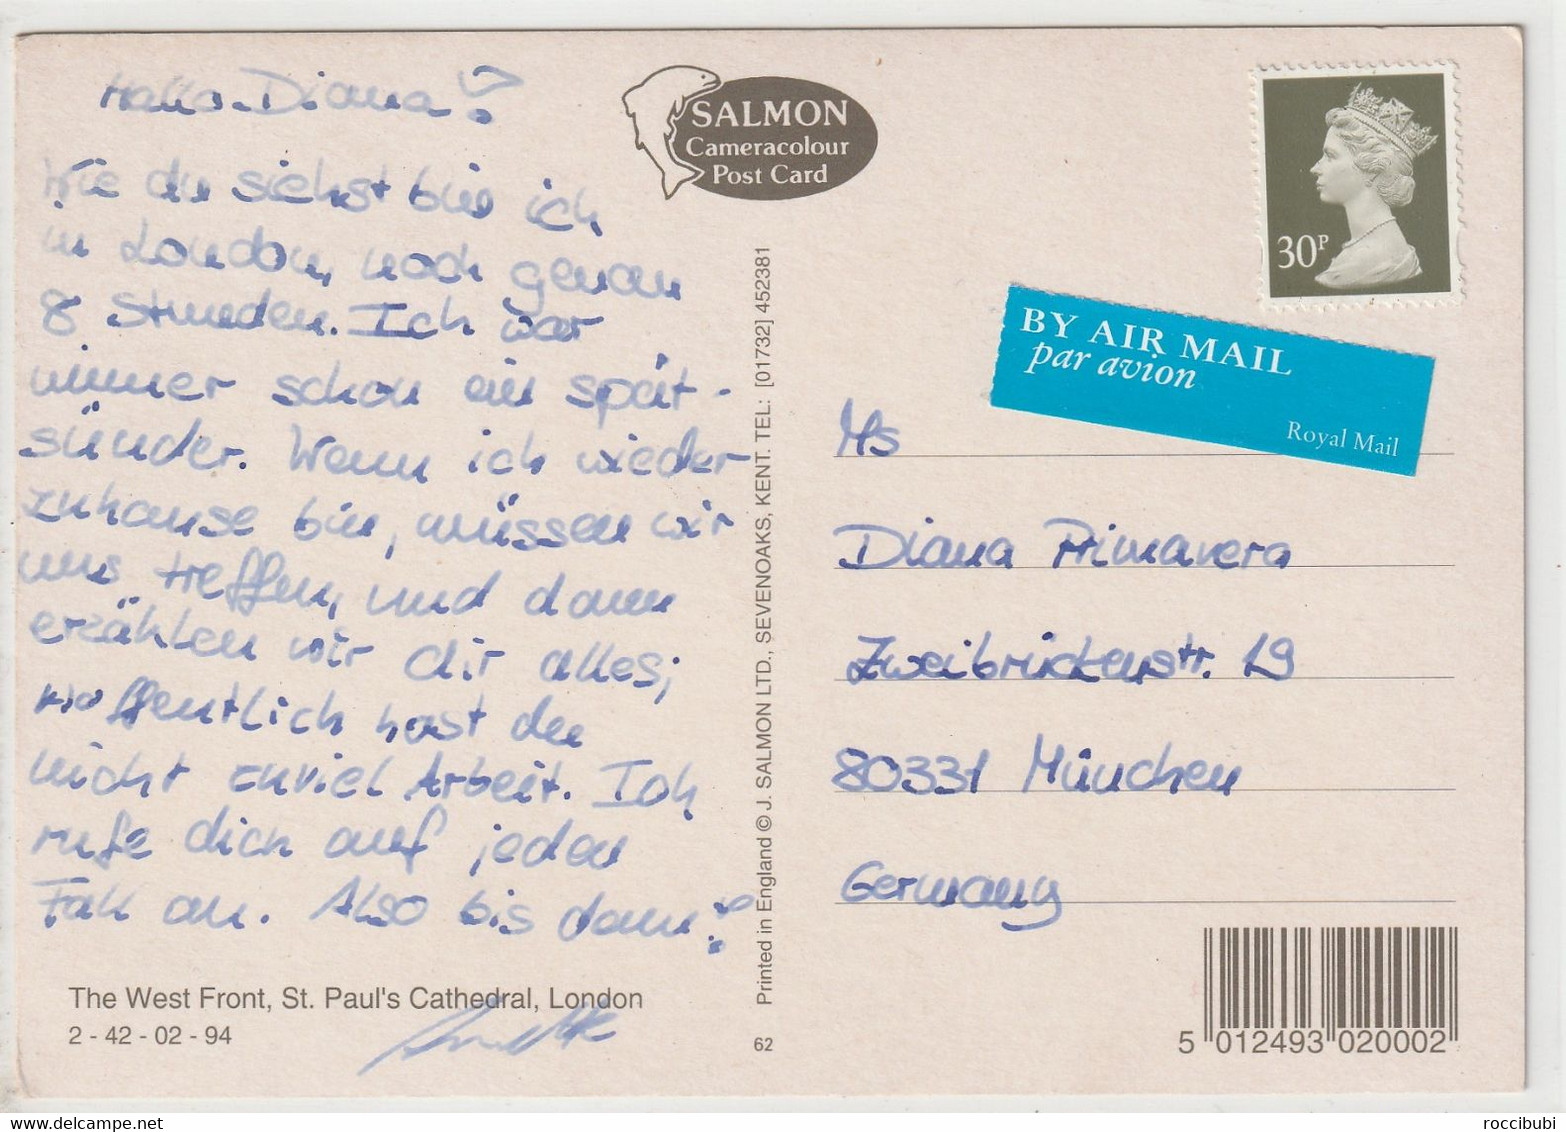 Hallo Diana!
Wie du siehst bin ich
in London, noch genau
8 Stunden. Ich war
immer schon ein spät-
sünder. Wenn ich wieder
zuhause bin, müssen wir
uns treffen, und dann
erzählen wir dir alles;
hoffentlich hast du
nicht zuviel Arbeit. Ich
rufe dich auf jeden
Fall an. Also bis dann!
The West Front, St. Paul's Cathedral, London
2 - 42 - 02 - 94
SALMON
Cameracolour
Post Card
Printed in England © J. SALMON LTD., SEVENOAKS, KENT. TEL: [01732] 452381
62
30P
BY AIR MAIL
par avion
Royal Mail
Ms
Diana Primavera
Zweibrückenstr. 19
80331 München
Germany
5 012493 020002
roccibubi